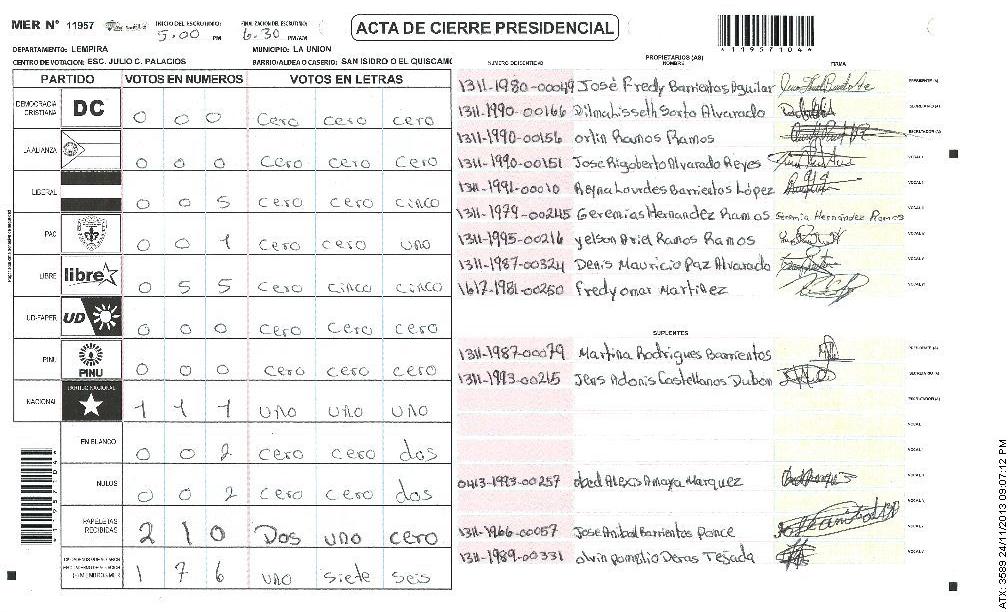 MER N° 11957
INICIO DEL ESCRUTINIO: 5.00 PM
FINALIZACION DEL ESCRUTINIO: 6.30 PM/AM
ACTA DE CIERRE PRESIDENCIAL
119571044
DEPARTAMENTO: LEMPIRA
MUNICIPIO: LA UNION
CENTRO DE VOTACION: ESC. JULIO C. PALACIOS
BARRIO/ALDEA O CASERIO: SAN ISIDRO O EL QUISCAMO
PARTIDO VOTOS EN NUMEROS VOTOS EN LETRAS
DEMOCRACIA CRISTIANA DC 0 0 0 cero cero cero
LA ALIANZA 0 0 0 cero cero cero
LIBERAL 0 0 5 cero cero cinco
PAC 0 0 1 cero cero uno
LIBRE libre 0 5 5 cero cinco cinco
UD-FAPER UD 0 0 0 cero cero cero
PINU PINU 0 0 0 cero cero cero
NACIONAL PARTIDO NACIONAL 1 1 1 uno uno uno
EN BLANCO 0 0 2 cero cero dos
NULOS 0 0 2 cero cero dos
PAPELETAS RECIBIDAS 2 1 0 Dos uno cero
1 7 6 uno siete seis
PROPIETARIOS (AS)
NUMERO DE IDENTIDAD NOMBRE FIRMA
1311-1980-00049 José Fredy Barrientos Aguilar PRESIDENTE (A)
1311-1990-00166 Dilma Lisseth Sorto Alvarado SECRETARIO (A)
1311-1990-00156 ortin Ramos Ramos ESCRUTADOR (A)
1311-1990-00151 Jose Rigoberto Alvarado Reyes
1311-1991-00010 Reyna Lourdes Barrientos López
1311-1979-00245 Geremias Hernandez Ramos Geremia Hernández Ramos
1311-1995-00216 yelson Ariel Ramos Ramos
1311-1987-00324 Denis Mauricio Paz Alvarado
1617-1981-00250 Fredy omar Martinez
SUPLENTES
1311-1987-00079 Martina Rodrigues Barrientos PRESIDENTE (A)
1311-1993-00265 Jens Adonis Castellanos Dubon SECRETARIO (A)
ESCRUTADOR (A)
0413-1993-00257 obed Alexis Amaya Marquez
1311-1966-00057 Jose Anibal Barrientos Ponce
1311-1989-00331 olvin Pompilio Deras Tejada
ATX: 3589 24/11/2013 09:07:12 PM